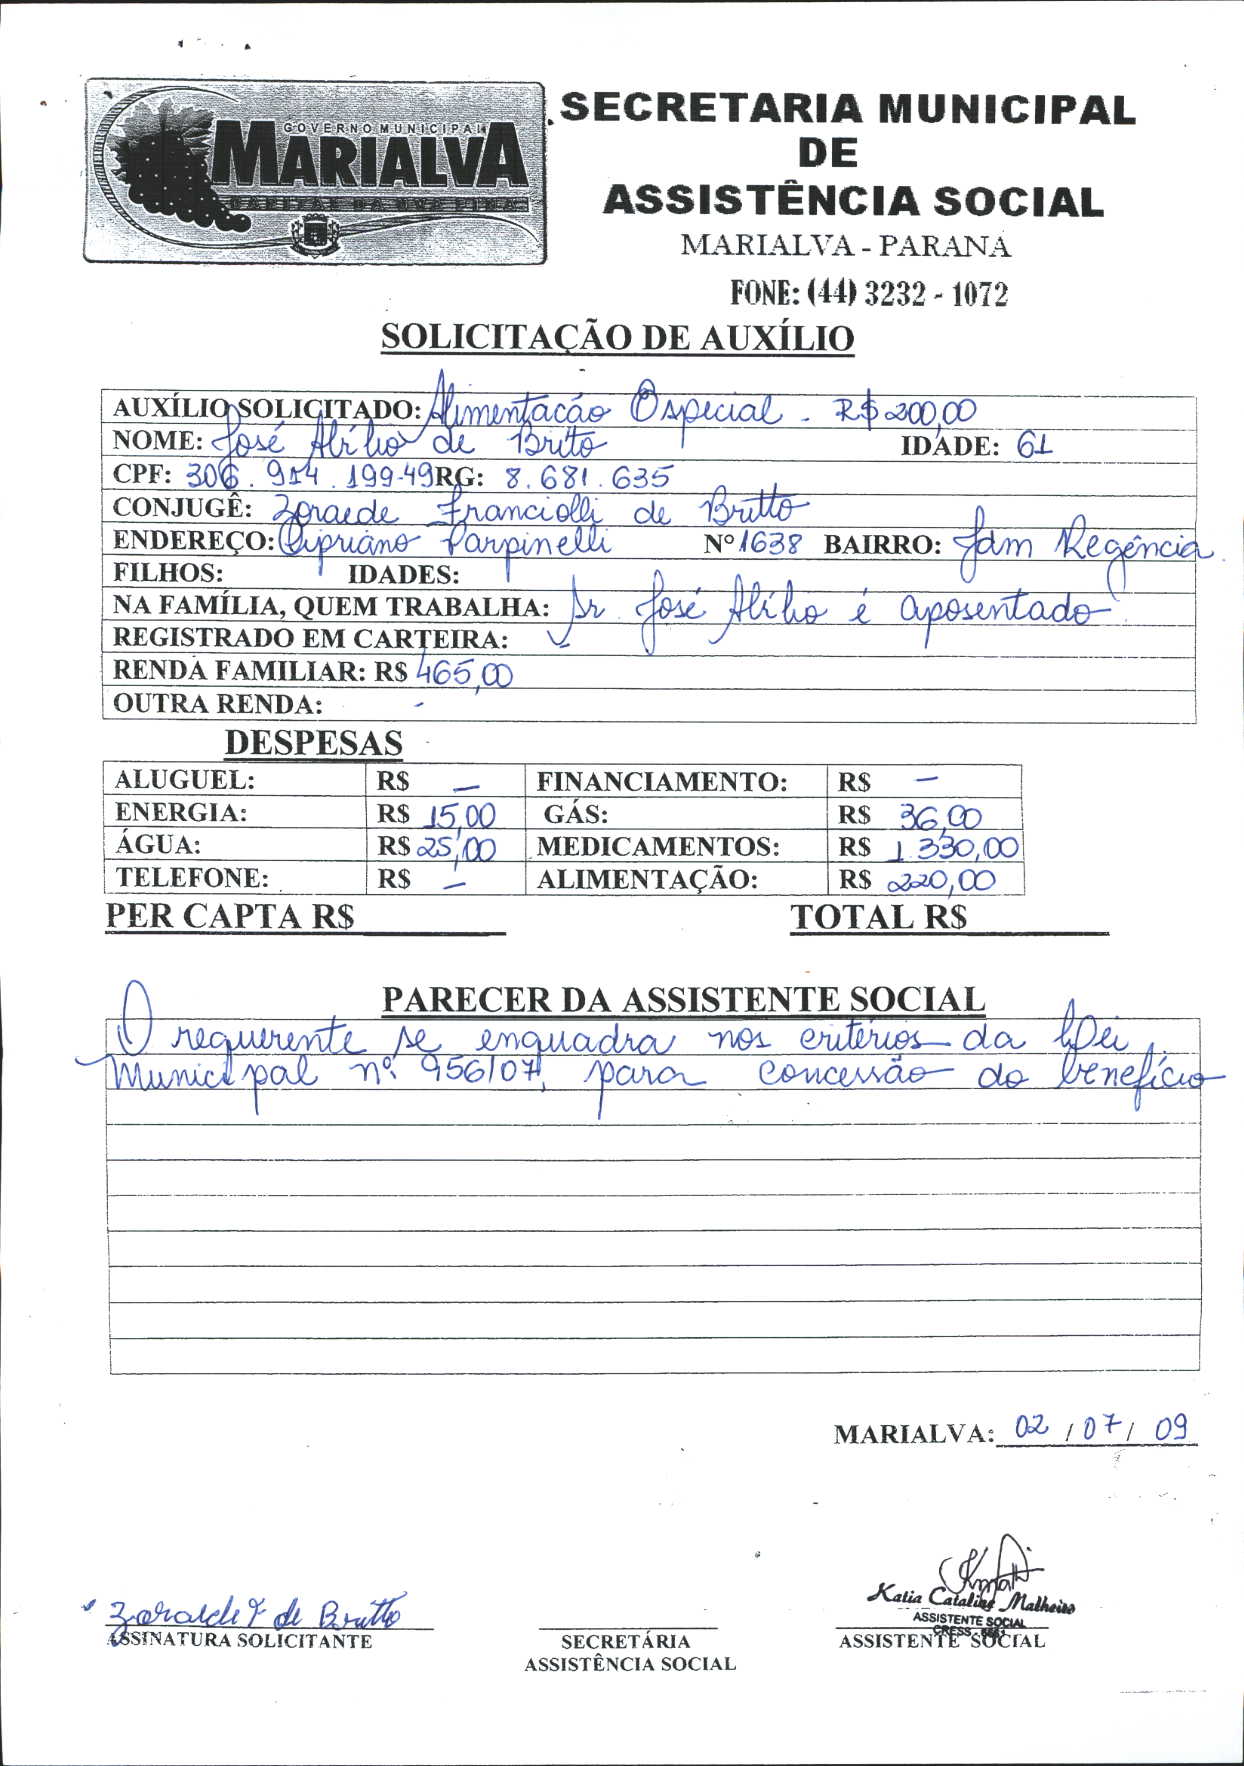 GOVERNO MUNICIPAL
MARIALVA
CAPITAL DA UVA FINA
SECRETARIA MUNICIPAL
DE
ASSISTÊNCIA SOCIAL
MARIALVA - PARANÁ
FONE: (44) 3232 - 1072
SOLICITAÇÃO DE AUXÍLIO
AUXÍLIO SOLICITADO: Alimentacáo Especial - R$ 200,00
NOME: José Alílho de Brito IDADE: 61
CPF: 306.914.199-49 RG: 8.681.635
CONJUGÊ: Zoraede Franciolli de Britto
ENDEREÇO: Cipriano Parpinelli Nº 1638 BAIRRO: Jdm Regência
FILHOS: IDADES:
NA FAMÍLIA, QUEM TRABALHA: Sr José Alílho é aposentado
REGISTRADO EM CARTEIRA:
RENDA FAMILIAR: R$ 465,00
OUTRA RENDA: -
DESPESAS
ALUGUEL: R$ — FINANCIAMENTO: R$ —
ENERGIA: R$ 15,00 GÁS: R$ 36,00
ÁGUA: R$ 25,00 MEDICAMENTOS: R$ 1.330,00
TELEFONE: R$ — ALIMENTAÇÃO: R$ 220,00
PER CAPTA R$ TOTAL R$
PARECER DA ASSISTENTE SOCIAL
O requerente se enquadra nos critérios da Lei
Municipal nº 956/07, para concessão do benefício
MARIALVA: 02 / 07 / 09
Zoraide F de Britto
Katia Catalina Malheiro
ASSISTENTE SOCIAL
CRESS
ASSINATURA SOLICITANTE SECRETÁRIA ASSISTENTE SOCIAL
ASSISTÊNCIA SOCIAL